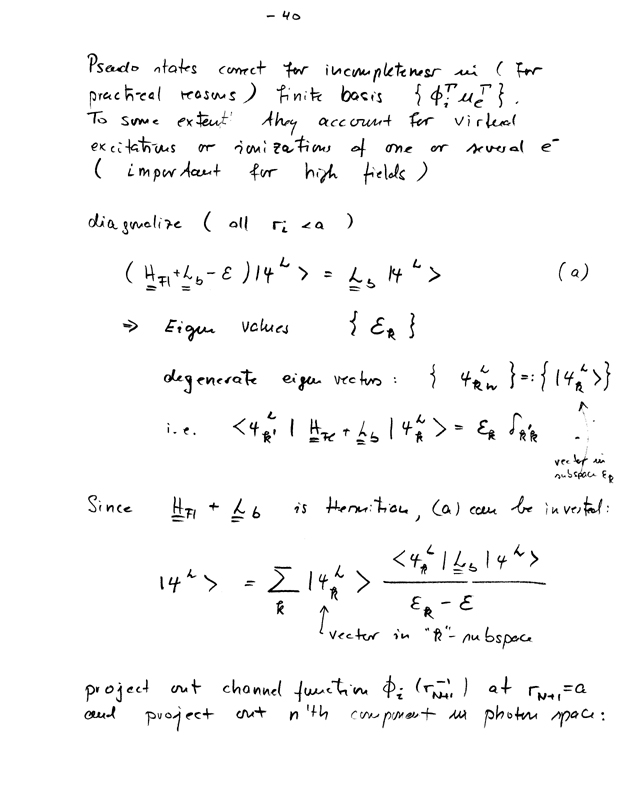 - 40
Pseudo states correct for incompleteness in ( for
practical reasons ) finite basis { ϕ_i^Γ u_e^Γ }.
To some extent they account for virtual
excitations or ionizations of one or several e⁻
( important for high fields )
diagonalize ( all r_i < a )
( H_Fl + L_b - ε ) |ψ^L > = L_b |ψ^L > (a)
⇒ Eigen values { ε_k }
degenerate eigen vectors : { ψ_kn^L } =: { |ψ_k^L > }
i.e. < ψ_k'^L | H_Fl + L_b | ψ_k^L > = ε_k δ_k'k
vector in
subspace ε_k
Since H_Fl + L_b is Hermitian, (a) can be inverted:
|ψ^L > = Σ_k |ψ_k^L > < ψ_k^L | L_b | ψ^L > / ε_k - ε
vector in "k"- subspace
project out channel function ϕ_i ( r_N+1^-1 ) at r_N+1 = a
and project out n'th component in photon space: